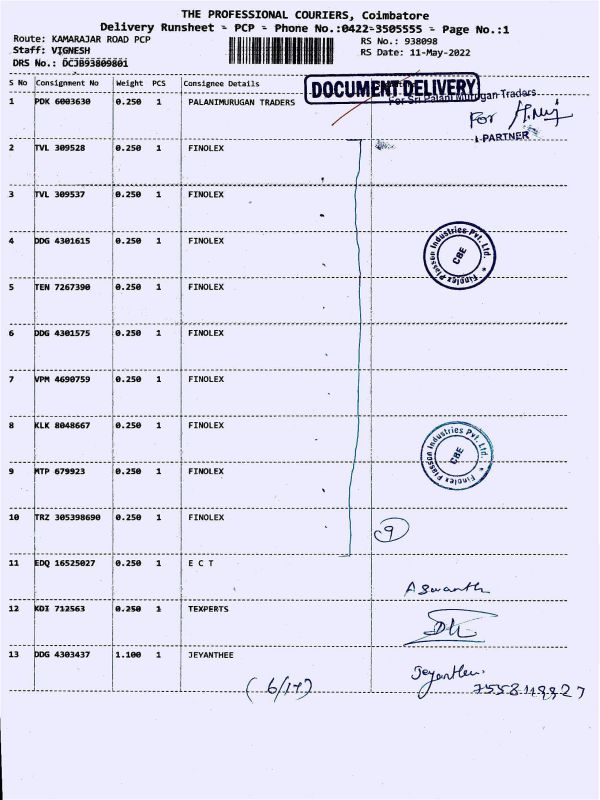 THE PROFESSIONAL COURIERS, Coimbatore
Delivery Runsheet - PCP - Phone No.:0422-3505555 - Page No.:1
Route: KAMARAJAR ROAD PCP
Staff: VIGNESH
DRS No.: DCJB93809801
RS No.: 938098
RS Date: 11-May-2022
S No Consignment No Weight PCS Consignee Details
DOCUMENT DELIVERY
1 PDK 6003630 0.250 1 PALANIMURUGAN TRADERS
For Sri Palani Murugan Traders
For
PARTNER
2 TVL 309528 0.250 1 FINOLEX
3 TVL 309537 0.250 1 FINOLEX
4 DDG 4301615 0.250 1 FINOLEX
Finolex Plasson Industries Pvt. Ltd. * CBE
5 TEN 7267390 0.250 1 FINOLEX
6 DDG 4301575 0.250 1 FINOLEX
7 VPM 4690759 0.250 1 FINOLEX
8 KLK 8048667 0.250 1 FINOLEX
Finolex Plasson Industries Pvt. Ltd. * CBE
9 MTP 679923 0.250 1 FINOLEX
10 TRZ 305398690 0.250 1 FINOLEX
9
11 EDQ 16525027 0.250 1 E C T
Aswanth
12 KDI 712563 0.250 1 TEXPERTS
13 DDG 4303437 1.100 1 JEYANTHEE
Jeyanthee.